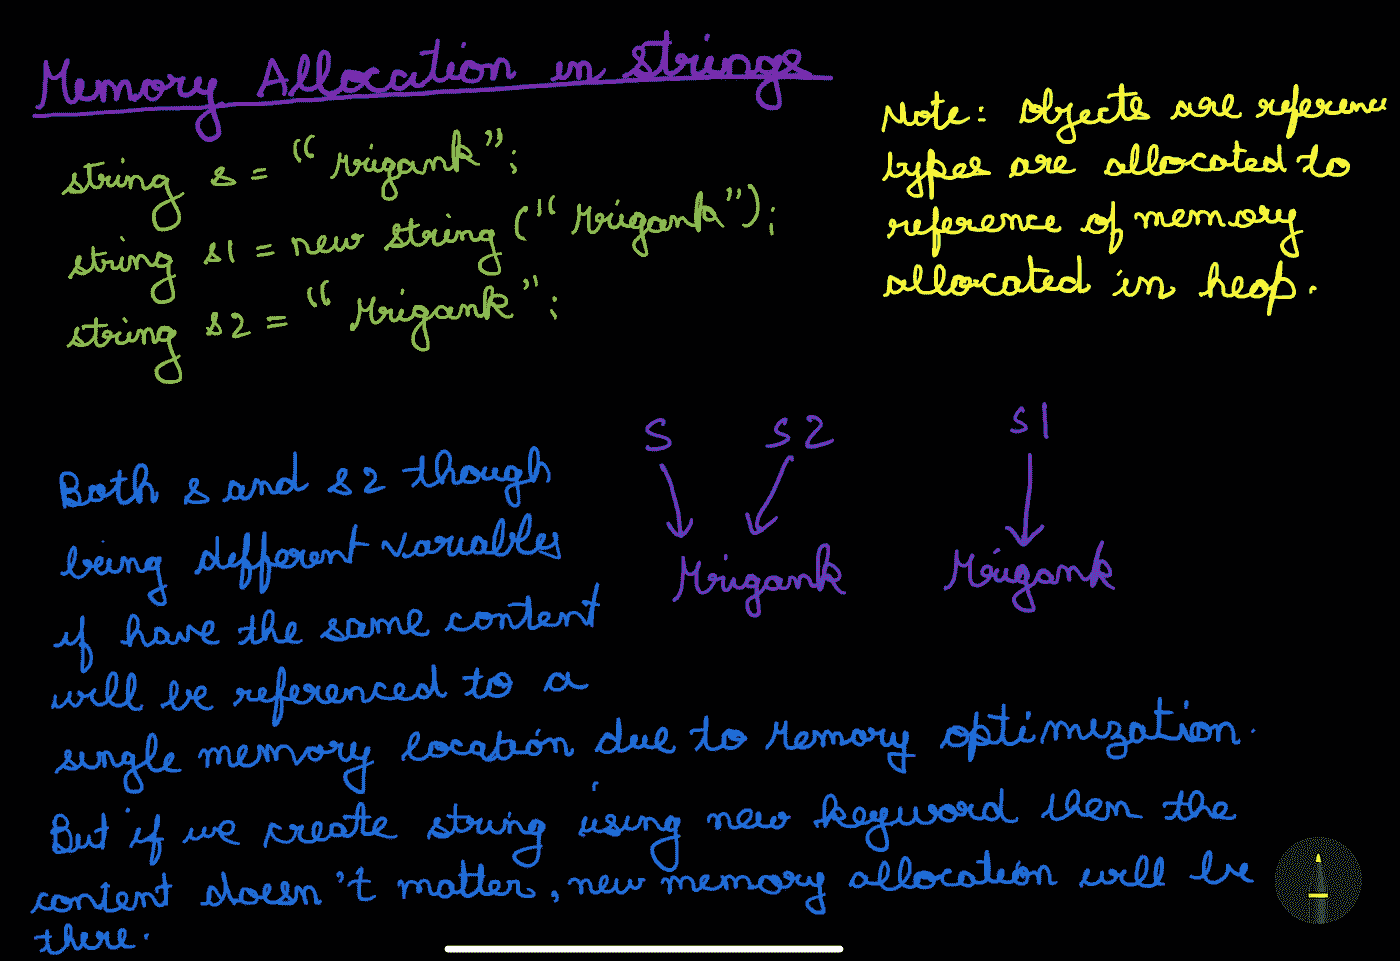 Memory Allocation in Strings
string s = "Mrigank";
string s1 = new string ("Mrigank");
string s2 = "Mrigank";
Note: Objects are reference
types are allocated to
reference of memory
allocated in heap.
S s2 s1
Mrigank Mrigank
Both s and s2 though
being different variables
if have the same content
will be referenced to a
single memory location due to memory optimization.
But if we create string using new keyword then the
content doesn't matter, new memory allocation will be
there.